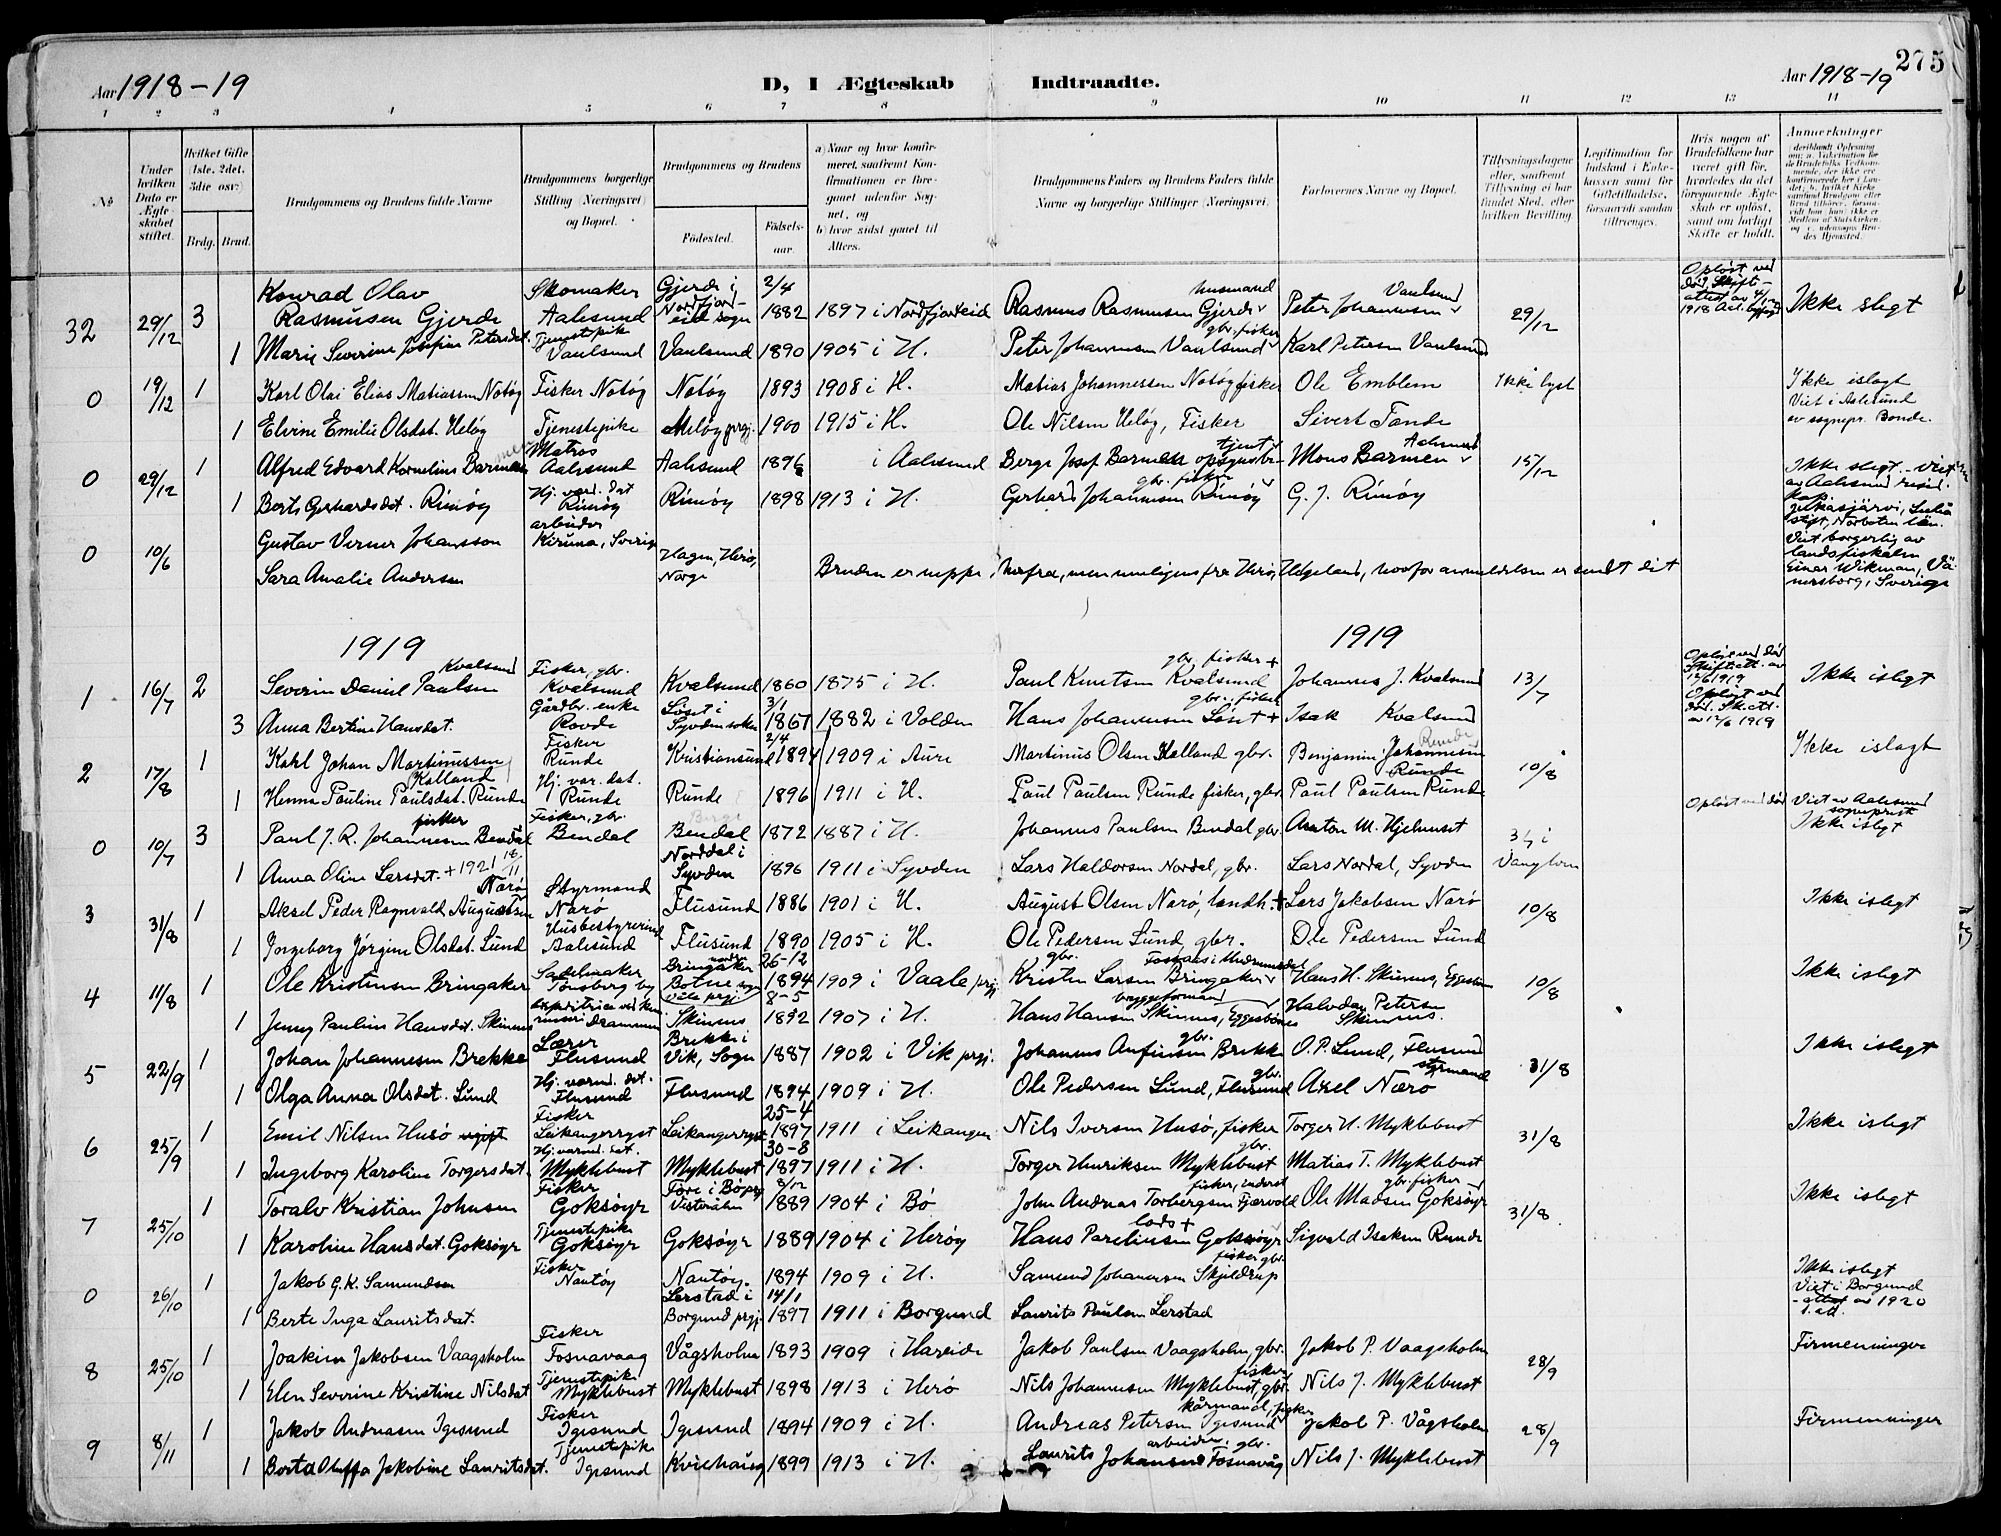 275
Aar 1918-19
D, I Ægteskab Indtraadte.
Aar 1918-19
1 2 3 4 5 6 7 8 9 10 11 12 13 14
No
Under hvilken Dato er Ægteskabet stiftet.
Hvilket Gifte (1ste, 2det, 3die osv.)
Brdg. Brud.
Brudgommens og Brudens fulde Navne
Brudgommens borgerlige Stilling (Næringsvei) og Bopæl.
Brudgommens og Brudens
Födested. Födselsaar.
a) Naar og hvor konfirmeret, saafremt Konfirmationen er foregaaet udenfor Sognet, og
b) hvor sidst gaaet til Alters.
Brudgommens Faders og Brudens Faders fulde Navne og borgerlige Stillinger (Næringsvei).
Forlovernes Navne og Bopæl.
Tillysningsdagene eller, saafremt Tillysning ei har fundet Sted, efter hvilken Bevilling.
Legitimation for Indskud i Enkekassen samt for Giftetilladelse, forsaavidt saadan tiltrænges.
Hvis nogen af Brudefolkene har været gift før, hvorledes da det foregaaende Ægteskab er opløst, samt om lovligt Skifte er holdt.
Anmerkninger
32 29/12 3 Konrad Olav Rasmusen Gjerde Skomaker Aalesund Gjerde i Nordfjordeid sogn 2/4 1882 1897 i Nordfjordeid Rasmus Rasmusen Gjerde husmand Peter Johannesen Vaulsund 29/12 Ikke slegt
1 Marie Severine Josefine Petersdat. Tjenestepike Vaulsund Vaulsund 1890 1905 i H. Peter Johannesen Vaulsund gbr. fisker Karl Petersen Vaulsund
0 19/12 1 Karl Olai Elias Matiassen Notøy Fisker Notøy Notøy 1893 1908 i H. Matias Johannessen Notøy fisker Ole Emblem Ikke lyst Ikke islegt Viet i Aalesund av sognepr. Bonde.
1 Elvine Emilie Olsdat. Tjenestepike 1900 1915 i H. Ole Nilsen Fisker Sivert Tande
0 29/12 1 Alfred Edvard Kornelius Barmen Matros Aalesund Aalesund 1896 i Aalesund Berge Josef Barmen Mons Barmen Aalesund 15/12 Ikke slegt
1 Gerhardsdat. Rimøy Hj. vær. dat Rimøy Rimøy 1898 1913 i H. Gerhard Johannesen Rimøy gbr. fisker G. J. Rimøy
0 10/6 Gustav Verner Johansson arbeider Kiruna, Sverige
Viet borgerlig av landsfiskalen Einar Wikman, Vänersborg, Sverige
Sara Amalie Andersen Hagen, Herø, Norge Bruden er neppe herfra, men muligens fra Herø, Helgeland, hvorfor anmeldelsen er sendt dit
1919 1919
1 16/7 2 Severin Daniel Paulsen Kvalsund Fisker, gbr. Kvalsund Kvalsund 1860 1875 i H. Paul Knutsen Kvalsund gbr. fisker + Johannes J. Kvalsund 13/7 Ikke islegt
3 Anna Bertine Hansdat. Gårdbr. enke Rovde Løset i Syvden sokn 3/1 1867 1882 i Volden Hans Johannesen Løset + gbr., fisker Isak Kvalsund Opløst ved død. 12/6 1919
2 17/8 1 Karl Johan Martinussen Kalland Fisker Runde Kristiansund 2/4 1894 1909 i Aure Martinus Olsen Kalland gbr. Benjamin Johannesen Runde 10/8 Ikke islegt
1 Pauline Paulsdat. Runde Hj. vær. dat. Runde Runde 1896 1911 i H. Paul Paulsen Runde fisker, gbr. Paul Paulsen Runde
0 10/7 3 Paul J. R. Johannesen Bendal fisker Fisker, gbr. Bendal Bendal 1872 1887 i H. Johannes Paulsen Bendal gbr. Opløst ved død Viet av Aalesund sogneprest Ikke islegt
1 Anna Oline Larsdat. +1921 18/11 Norddal i Syvden 1896 1911 i Syvden Lars Haldorsen Nordal, gbr. Lars Nordal, Syvden
3 31/8 1 Aksel Peder Ragnvald Augustsen Narø Styrmand Narø Flusund 1886 1901 i H. August Olsen Narø, landh. + Lars Jakobsen Narø 10/8 Ikke islegt
1 Jørgine Olsdat. Lund Husbestyrerinde Aalesund Flusund 1890 1905 i H. Ole Pedersen Lund, gbr. Ole Pedersen Lund
4 11/8 1 Ole Kristensen Bringaker Sadelmaker Tønsberg by Bringaker Botne sogn Våle prgj. 26-12 1894 1909 i Vaale prgj. Kristen Larsen Bringaker gbr. Hans H. Skinnes, Eggesbønes 10/8 Ikke islegt
1 Jenny Pauline Hansdat. Skinnes Drammen Skinnes 8-5 1892 1907 i H. Hans Hansen Skinnes, Eggesbønes bryggeformand Halvdan Petersen Skinnes.
5 22/9 1 Johan Johannesen Brekke Lærer Flusund Brekke i Vik, Sogn 1887 1902 i Vik prgj. Johannes Anfinsen Brekke gbr. O. P. Lund, Flusund 31/8 Ikke islegt
1 Olga Anna Olsdat. Lund Hj. værend. dat. Flusund Flusund 1894 1909 i H. Ole Pedersen Lund, Flusund gbr. Axel Nærø styrmand
6 25/9 1 Emil Nilsen Husø Fisker Leikangerryst Leikangerryst 25-4 1897 1911 i Leikanger Nils Iversen Husø, fisker Torger H. Myklebust 31/8 Ikke islegt
1 Ingeborg Karoline Torgersdat. Hj. værend. dat. Myklebust Myklebust 30-8 1897 1911 i H. Torger Henriksen Myklebust gbr. Matias T. Myklebust
7 25/10 1 Toralv Kristian Johnsen Fisker Goksøyr Føre i Bø prgj. Vesterålen 3/12 1889 1904 i Bø John Andreas Torbergsen Fjærvoll Ole Madsen Goksøyr gbr. fisker 31/8 Ikke islegt
1 Karoline Hansdat. Goksøyr Tjenestepike Goksøyr Goksøyr 1889 1904 i Herøy Hans Parelinsen Goksøyr lods + Sigvald Isaksen Runde
0 26/10 1 Jakob G. K. Samundsen Fisker Nautøy Nautøy. 1894 1909 i H. Samund Johannesen Skjeldrup fisker gbr. Ikke islegt Viet i Borgund
1 Berte Inga Lauritsdat. Lerstad i Borgund prgj. 14/1 1897 1911 i Borgund Laurits Paulsen Lerstad
8 25/10 1 Joakim Jakobsen Vaagsholm Fisker Fosnavaag Vågsholm 1893 1909 i Hareide Jakob Paulsen Vaagsholm, gbr. Jakob P. Vaagsholm 28/9 Firmenninger
1 Elen Severine Kristine Nilsdat Tjenestepike Myklebust Myklebust 1898 1913 i Herø Nils Johannesen Myklebust, gbr. fisker Nils J. Myklebust
9 8/11 1 Jakob Andreasen Igesund Fisker Igesund Igesund 1894 1909 i H. Andreas Petersen Igesund kårmand, fisker Jakob P. Vågsholm 28/9 Firmenninger
1 Jakobine Lauritsdat. Tjenestepike Igesund 1899 1913 i H. Laurits Johansen Fosnavåg arbeider, gbr. Nils J. Myklebust